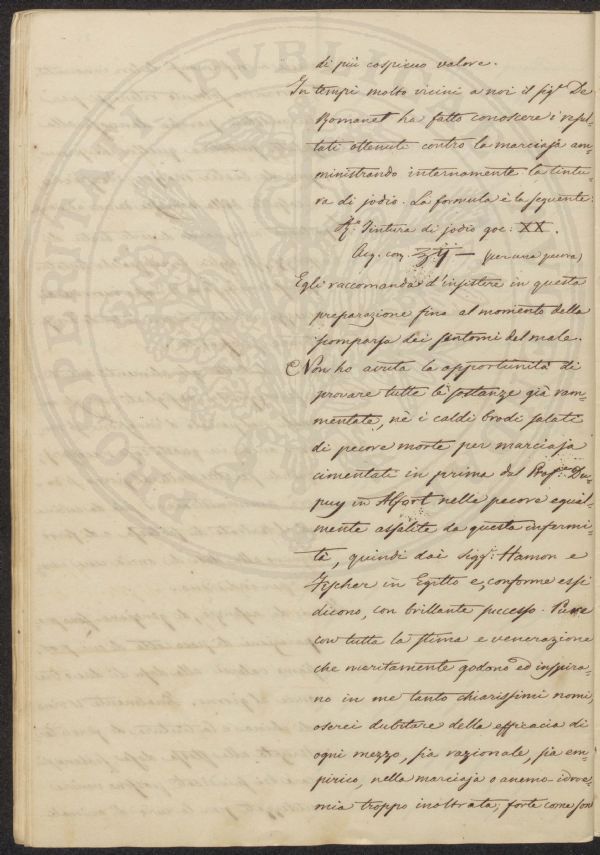 di più cospicuo valore.
In tempi molto vicini a noi il sigr. De
Romanet ha fatto conoscere i resul-
tati ottenuti contro la marciaja am-
ministrando internamente la tintu-
ra di jodio. La formula è la seguente:
Tintura di jodio goc: XX.
Acq. com. (per una pecora)
Egli raccomanda d'insistere in questa
preparazione fino al momento della
scomparsa dei sintomi del male.
Non ho avuta la opportunità di
provare tutte le sostanze già ram-
mentate, nè i caldi brodi salati
di pecore morte per marciaja
cimentati in prima dal Prof.re Du-
puy in Alfort nelle pecore egual-
mente assalite da questa infermi-
tà, quindi dai Sigg.i Hamon e
Fischer in Egitto e, conforme essi
dicono, con brillante successo. Pure
con tutta la stima e venerazione
che meritamente godono ed inspira-
no in me tanto chiarissimi nomi,
oserei dubitare della efficacia di
ogni mezzo, sia razionale, sia em-
pirico, nella marciaja o anemo-idroe-
mia troppo inoltrata; forte come son
PERITALI PVBLIC PROSPERITALI